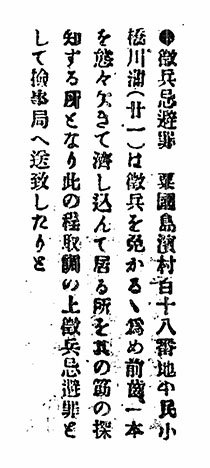 ●徴兵忌避罪　粟國島濱村百十八番地平民小
橋川蒲(廿一)は徴兵を免かるゝ爲め前齒一本
を態々欠きて濟し込んて居る所を其の筋の探
知する所となり此の程取調の上徴兵忌避罪と
して檢事局へ送致したりと